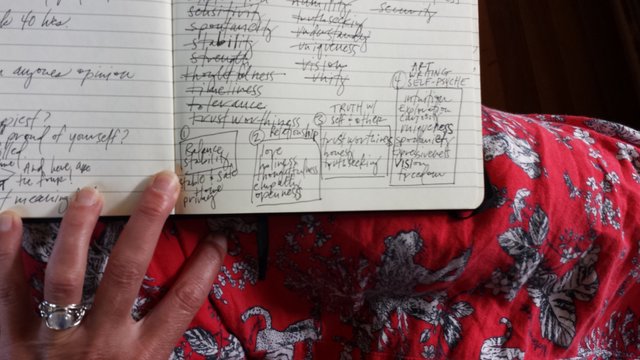 k 40 hrs.
anyones opinion
piest?
proud of yourself?
And here are
meaning
sensitivity
spontaneity
stability
strength
thoughtfulness
timeliness
tolerance
trustworthiness
humility
truthseeking
understanding
uniqueness
vision
unity
security
1
Balance
stability
safe
home
2
Relationship
love
thoughtfulness
empathy
openness
3
TRUTH w/
self + other
trustworthiness
honesty
truthseeking
4
ART
WRITING
SELF-PSYCHE
intuition
exploration
uniqueness
spontaneity
expressiveness
vision
freedom